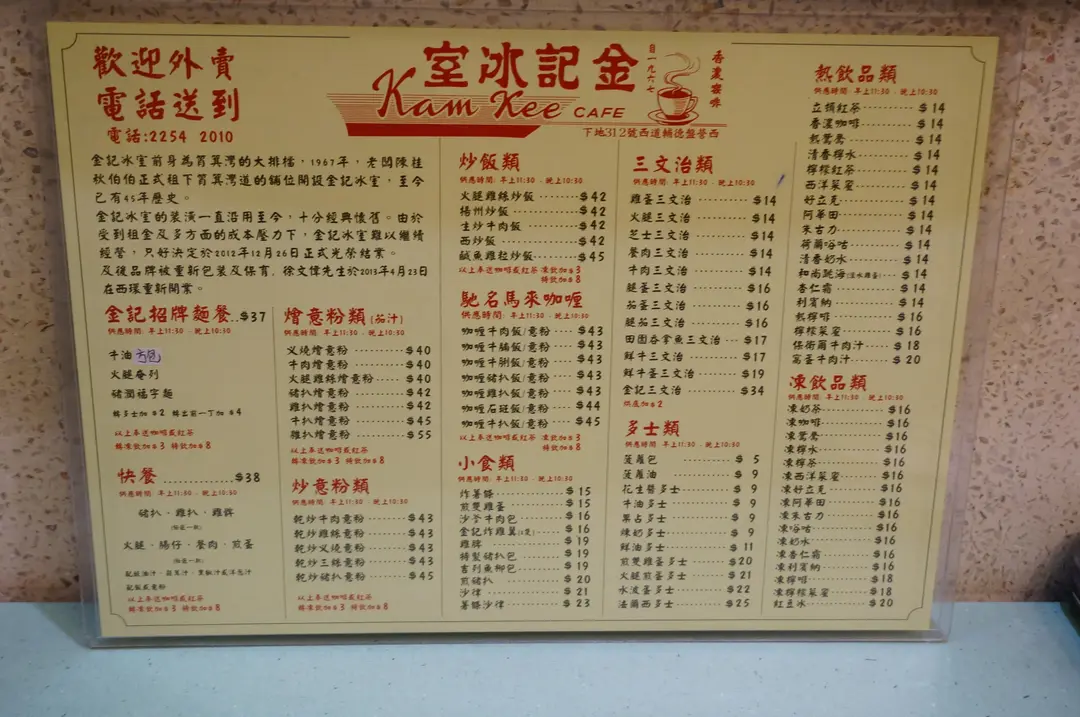 歡迎外賣
電話送到
電話:2254 2010
室冰記金
Kam Kee CAFE
自一九六七
香濃家啡
下地312號西道輔德盤營西
金記冰室前身為筲箕灣的大排檔，1967年，老闆陳桂
秋伯伯正式租下筲箕灣道的鋪位開設金記冰室，至今
已有45年歷史。
金記冰室的裝潢一直沿用至今，十分經典懷舊。由於
受到租金及多方面的成本壓力下，金記冰室難以繼續
經營，只好決定於2012年12月26日正式光榮結業。
及後品牌被重新包裝及保育，徐文偉先生於2013年4月23日
在西環重新開業。
金記招牌麵餐..$37
供應時間: 早上11:30 - 晚上10:30
牛油方包
火腿奄列
豬潤福字麵
轉多士加$2 轉出前一丁加$4
以上奉送咖啡或紅茶
轉凍飲加$3 特飲加$8
快餐 $38
供應時間: 早上11:30 - 晚上10:30
豬扒、雞扒、雞髀
(任選一款)
火腿、腸仔、餐肉、煎蛋
(任選一款)
配豉油汁、蒜茸汁、黑椒汁或洋葱汁
配飯或意粉
以上奉送咖啡或紅茶
轉凍飲加$3 特飲加$8
燴意粉類(茄汁)
供應時間: 早上11:30 - 晚上10:30
叉燒燴意粉 $40
牛肉燴意粉 $40
火腿雞絲燴意粉 $40
豬扒燴意粉 $42
雞扒燴意粉 $42
牛扒燴意粉 $45
雜扒燴意粉 $55
以上奉送咖啡或紅茶
轉凍飲加$3 特飲加$8
炒意粉類
供應時間: 早上11:30 - 晚上10:30
乾炒牛肉意粉 $43
乾炒雞絲意粉 $43
乾炒叉燒意粉 $43
乾炒三絲意粉 $43
乾炒豬扒意粉 $45
以上奉送咖啡或紅茶
轉凍飲加$3 特飲加$8
炒飯類
供應時間: 早上11:30 - 晚上10:30
火腿雞絲炒飯 $42
揚州炒飯 $42
生炒牛肉飯 $42
西炒飯 $42
鹹魚雞粒炒飯 $45
以上奉送咖啡或紅茶 凍飲加$3
特飲加$8
馳名馬來咖喱
供應時間: 早上11:30 - 晚上10:30
咖喱牛肉飯/意粉 $43
咖喱牛腩飯/意粉 $43
咖喱牛脷飯/意粉 $43
咖喱豬扒飯/意粉 $43
咖喱雞扒飯/意粉 $43
咖喱石斑飯/意粉 $44
咖喱牛扒飯/意粉 $45
以上奉送咖啡或紅茶 凍飲加$3
特飲加$8
小食類
供應時間: 早上11:30 - 晚上10:30
炸薯條 $15
煎雙雞蛋 $15
沙爹牛肉包 $16
金記炸雞翼(2隻) $16
雞髀 $19
特製豬扒包 $19
吉列魚柳包 $19
煎豬扒 $20
沙律 $21
薯條沙律 $23
三文治類
供應時間: 早上11:30 - 晚上10:30
雞蛋三文治 $14
火腿三文治 $14
芝士三文治 $14
餐肉三文治 $14
牛肉三文治 $14
腿蛋三文治 $16
茄蛋三文治 $16
腿茄三文治 $16
田園吞拿魚三文治 $17
鮮牛三文治 $17
鮮牛蛋三文治 $19
金記三文治 $34
烘底加$2
多士類
供應時間: 早上11:30 - 晚上10:30
菠蘿包 $5
菠蘿油 $9
花生醬多士 $9
牛油多士 $9
果占多士 $9
煉奶多士 $9
鮮油多士 $11
煎雙雞蛋多士 $20
火腿煎蛋多士 $21
水波蛋多士 $22
法蘭西多士 $25
熱飲品類
供應時間: 早上11:30 - 晚上10:30
立頓紅茶 $14
香濃咖啡 $14
熱鴛鴦 $14
清香檸水 $14
檸檬紅茶 $14
西洋菜蜜 $14
好立克 $14
阿華田 $14
朱古力 $14
荷爾唂咕 $14
清香奶水 $14
和尚跳海(滾水雞蛋) $14
杏仁霜 $14
利賓納 $14
熱檸啡 $16
檸檬菜蜜 $16
保衛爾牛肉汁 $18
窩蛋牛肉汁 $20
凍飲品類
供應時間: 早上11:30 - 晚上10:30
凍奶茶 $16
凍咖啡 $16
凍鴛鴦 $16
凍檸水 $16
凍檸茶 $16
凍西洋菜蜜 $16
凍好立克 $16
凍阿華田 $16
凍朱古力 $16
凍唂咕 $16
凍奶水 $16
凍杏仁霜 $16
凍利賓納 $16
凍檸啡 $18
凍檸檬菜蜜 $18
紅豆冰 $20